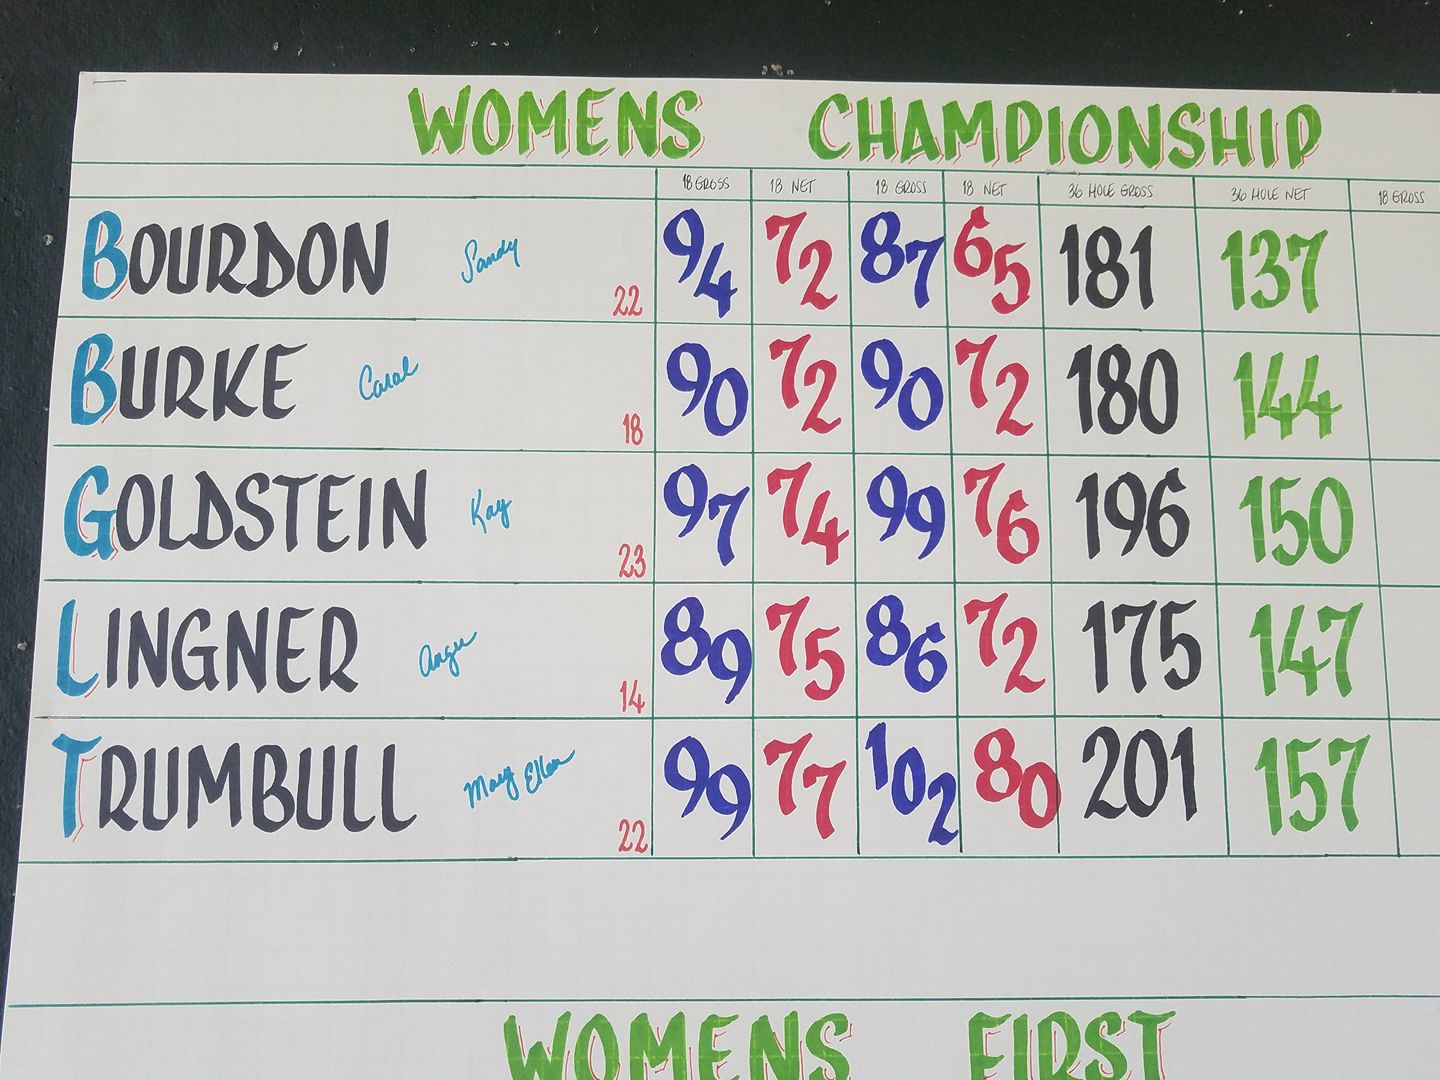 WOMENS CHAMPIONSHIP
18 GROSS 18 NET 18 GROSS 18 NET 36 HOLE GROSS 36 HOLE NET 18 GROSS
BOURDON Sandy 22 94 72 87 65 181 137
BURKE Carol 18 90 72 90 72 180 144
GOLDSTEIN Kay 23 97 74 99 76 196 150
LINGNER Angie 14 89 75 86 72 175 147
TRUMBULL Mary Ellen 22 99 77 102 80 201 157
WOMENS FIRST